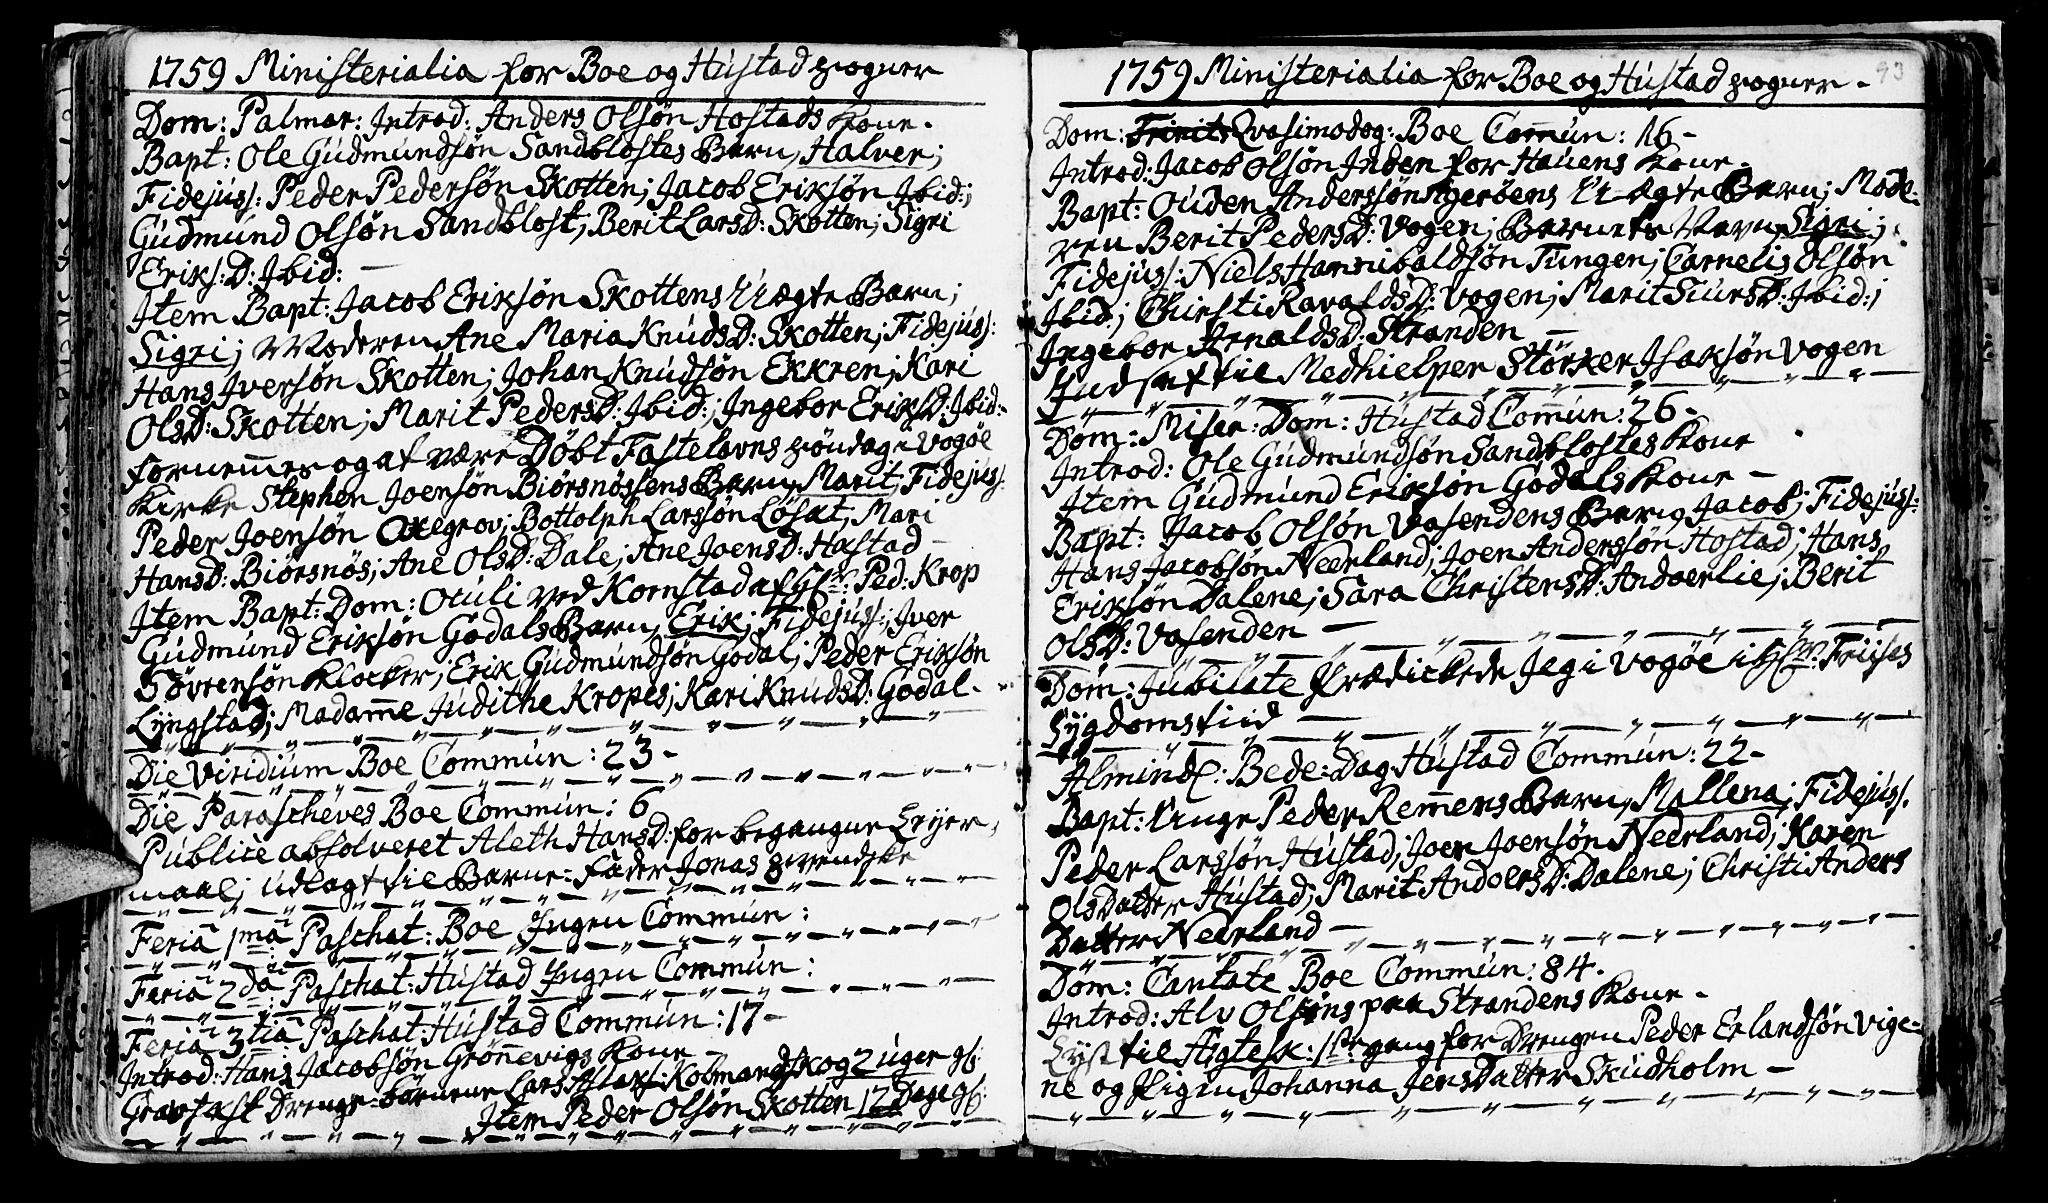 1759 Ministerialia for Boe og Hustad sogner
Dom: Palmar: Introd: Anders Olsøn Hostads Kone.
Bapt: Ole Gudmundsøn Sandblostes Barn, Halver;
Fidejuss: Peder Pedersøn Skotten; Jacob Eriksøn Ibid:;
Gudmund Olsøn Sandblost; Berit LarsD: Skotten; Sigri
Eriks:D: Ibid: —
Item Bapt: Jacob Eriksøn Skottens Uægte Barn;
Sigri; Moderen Ane Maria KnudsD: Skotten; Fidejuss:
Hans Iversøn Skotten; Johan Knudsøn Ekkren; Kari
OlsD: Skotten; Marit PedersD: Ibid:; Ingebor EriksD: Ibid:
Fornemmes og at være Døbt Fastelavns søndag i Vogöe
Kirke Stephen Joensøn Biörsnössens Barn, Marit; Fidejuss:
Peder Joensøn Oxegrov; Bottolph Larssøn Lösæt; Mari
HansD: Biörsnös; Ane OlsD: Dale; Ane JoensD: Hastad —
Item Bapt: Dom: Oculi ved Kornstad af Hr: Ped: Krop
Gudmund Eriksøn Godals Barn, Erik; Fidejuss:, Iver
Sövrensøn Klocker; Erik Gudmundsøn Godal; Peder Eriksøn
Lyngstad; Madamme Judithe Kropes; Kari KnudsD: Godal —
Die Viridium Boe Commun: 23 —
Die Parascheves Boe Commun: 6
Publice absolveret Aleth HansD: for begangne Leyer-
maal; Udlagt til Barne-Fader Jonas svendske
Feria 1ma Paschat: Boe Ingen Commun:
Feria 2da: Paschat: Hustad Ingen Commun:
Feria 3tia Paschat: Hustad Commun: 17 —
Introd: Hans Jacobsøn Grönnevigs Kone —
Gravfæst Drenge-Börnene Lars Kolmandskog 2 uger gl:
Item Peder Olsøn Skotten 12 Dage gl:
1759 Ministerialia for Boe og Hustad sogner — 93
Dom: Trinit: Qvasimodog: Boe Commun: 16 —
Introd: Jacob Olsøn Inden for Hauens Kone —
Bapt: Ouden Anderssøn Ageröens U-ægte Barn; Mode-
ren Berit PedersD: Vogen; Barnets Navn, Sigri;
Fidejuss: Niels Hannibaldsøn Tungen; Cornelis Olsøn
Ibid:; Christi RavaldsD: Vogen; Marit SiursD: Ibid:;
Ingebor ArnaldsD: Stranden —
Indsat til Medhielper Störker Isaksøn Vogen
Dom: Miser: Dom: Hustad Commun: 26 —
Introd: Ole Gudmundsøn Sandblostes Kone
Item Gudmund Eriksøn Godals Kone —
Bapt: Jacob Olsøn Vasendens Barn, Jacob; Fidejuss:
Hans Jacobsøn Neerland; Joen Anderssøn Hostad; Hans
Eriksøn Dalene; Sara ChristensD: Andoerlie; Berit
OlsD: Vasenden —
Dom: Jubilate Prædickede Jeg i Vogöe i Hr: Friises
Sygdomstiid —
Almindl: Bede-Dag Hustad Commun: 22 —
Bapt: Unge Peder Remmens Barn, Mallena; Fidejuss:
Peder Larssøn Hustad; Joen Joensøn Neerland; Karen
OlsDatter Hustad; Marit AndoersD: Dalene; Christi Anders
Datter Neerland —
Dom: Cantate Boe Commun: 84.
Introd: Alv Olsøns paa Strandens Kone —
Lyst til Ægtesk: 1ste gang for Drengen Peder Erlandsøn Vige-
ne og Pigen Johanna JensDatter Skudholm —